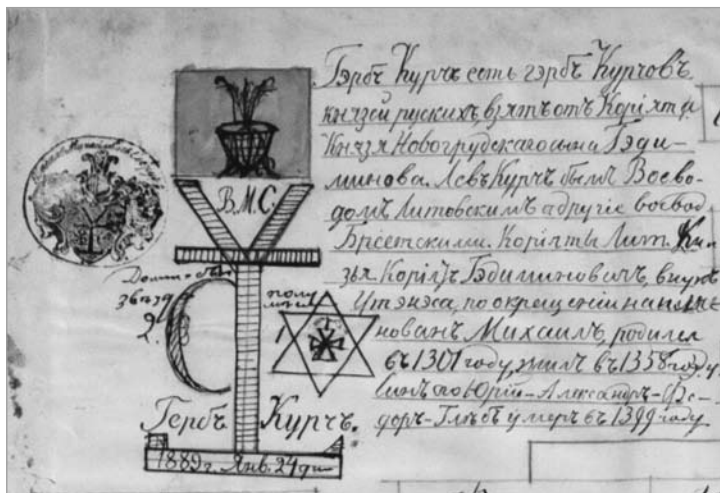 Гэрбъ Курчъ есть гэрбъ Курчовъ
князей руских, взятъ отъ Коріята
Князя Новогрудскаго сына Гэди-
минова. Левъ Курчъ былъ Воево-
домъ Литовскимъ а другіе воевод.
Брісетскими. Коріяты Лит. Кня-
зья. Коріятъ Гэдиминовичъ, внукъ
Утэнэса, по окрещеніи на имене
нованъ Михаилъ, родился
въ 1301 году, жилъ въ 1358 году,
Юрій-Александръ-Фе-
доръ-Глѣбъ умеръ въ 1399 году
В.М.С.
звѣзд
2.
1
Гербъ Курчъ.
1889 г. Янв. 24 дн